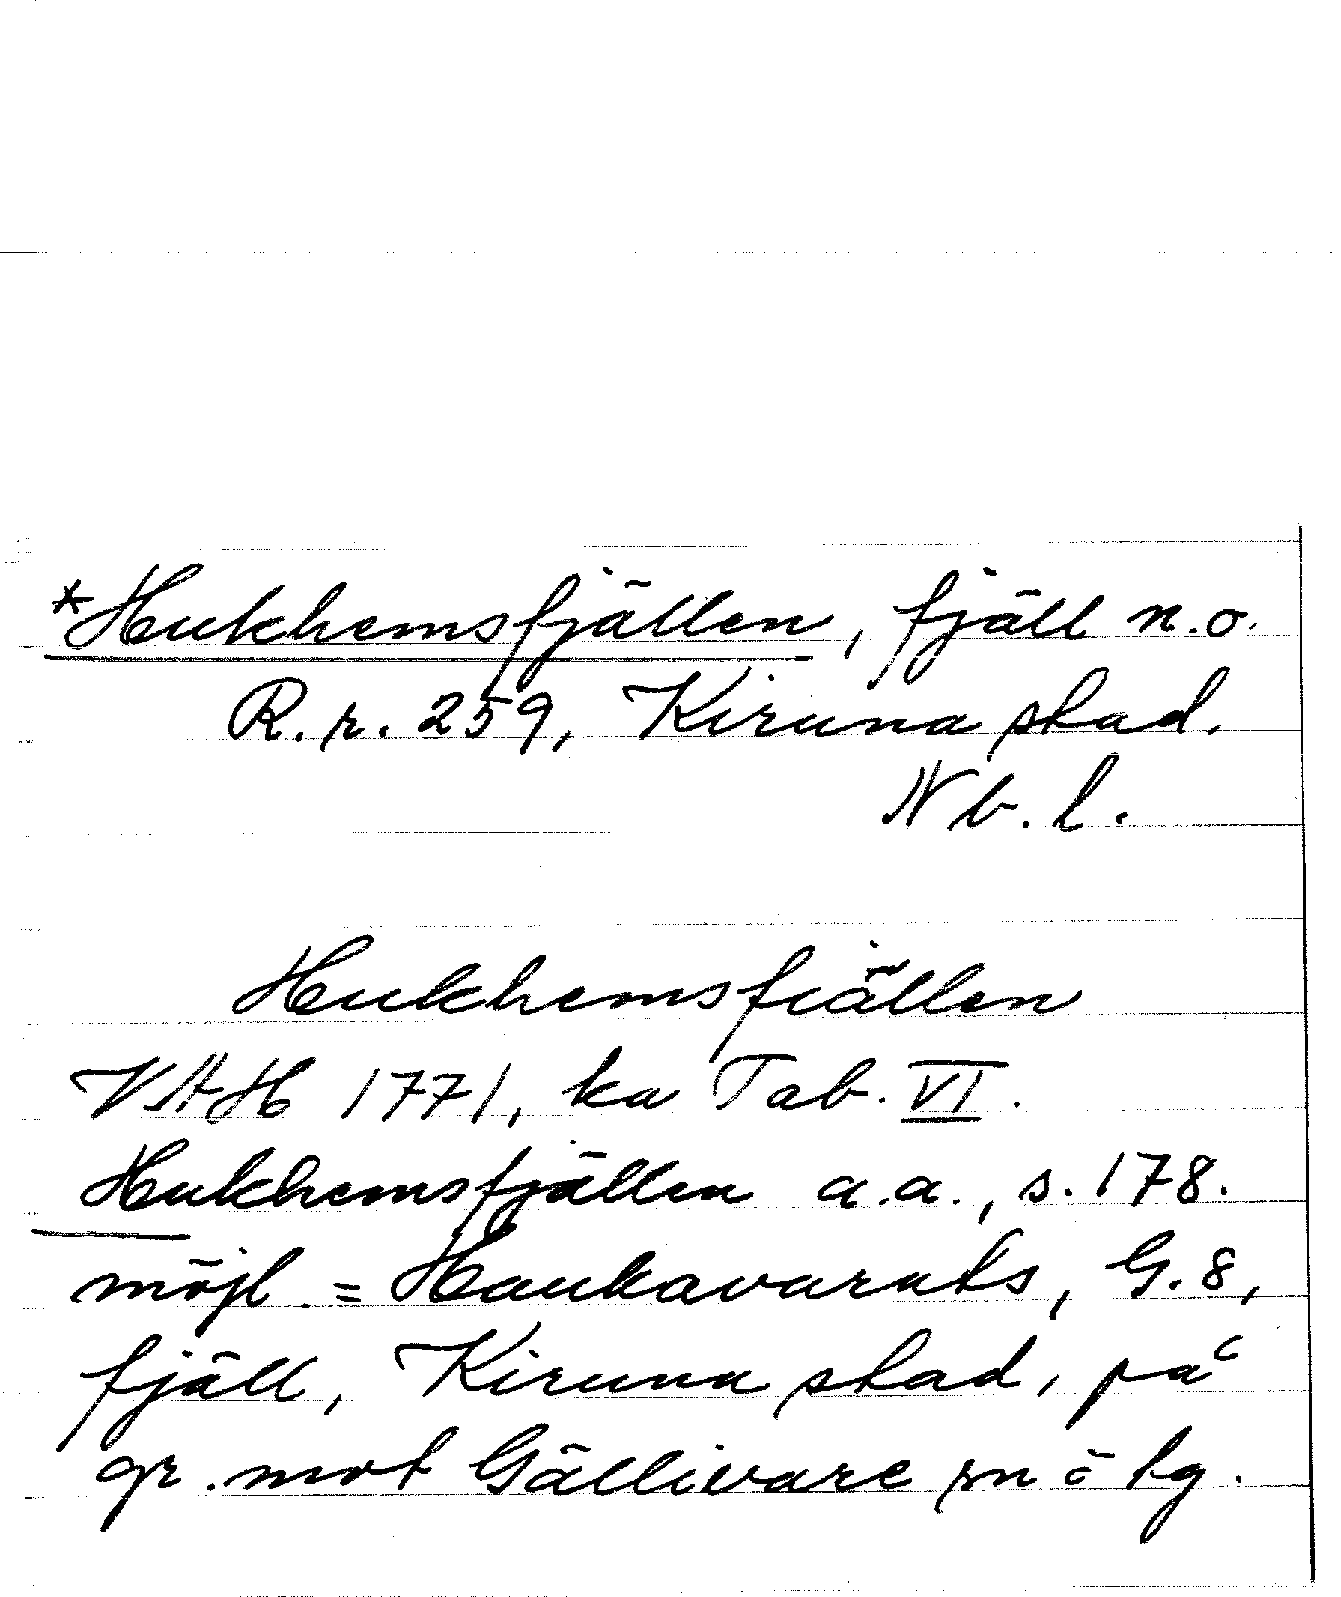 *Hukhemsfjällen, fjäll n.o.
R.r. 259, Kiruna stad.
Nb.l.
Hukhemsfiällen
VAH 1771, ka Tab. VI.
Hukhemsfjällen a.a., s. 178.
möjl. = Haukavarats, G. 8,
fjäll, Kiruna stad, på
gr. mot Gällivare sn ö tg.